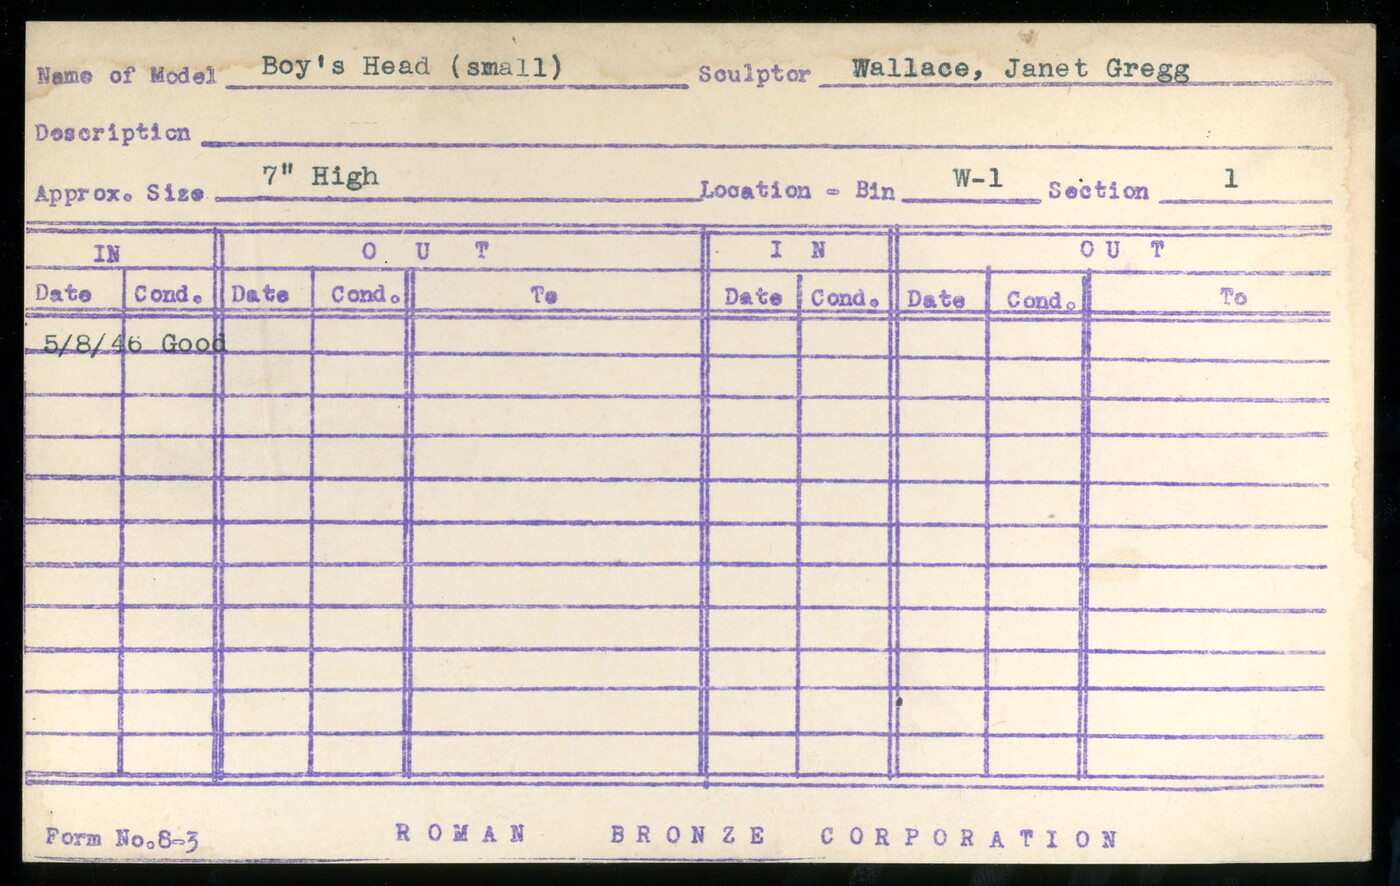 Name of Model Boy's Head (small) Sculptor Wallace, Janet Gregg
Description
Approx. Size 7" High Location - Bin W-1 Section 1
IN OUT IN OUT
Date Cond. Date Cond. To Date Cond. Date Cond. To
5/8/46 Good
Form No.8-3 ROMAN BRONZE CORPORATION